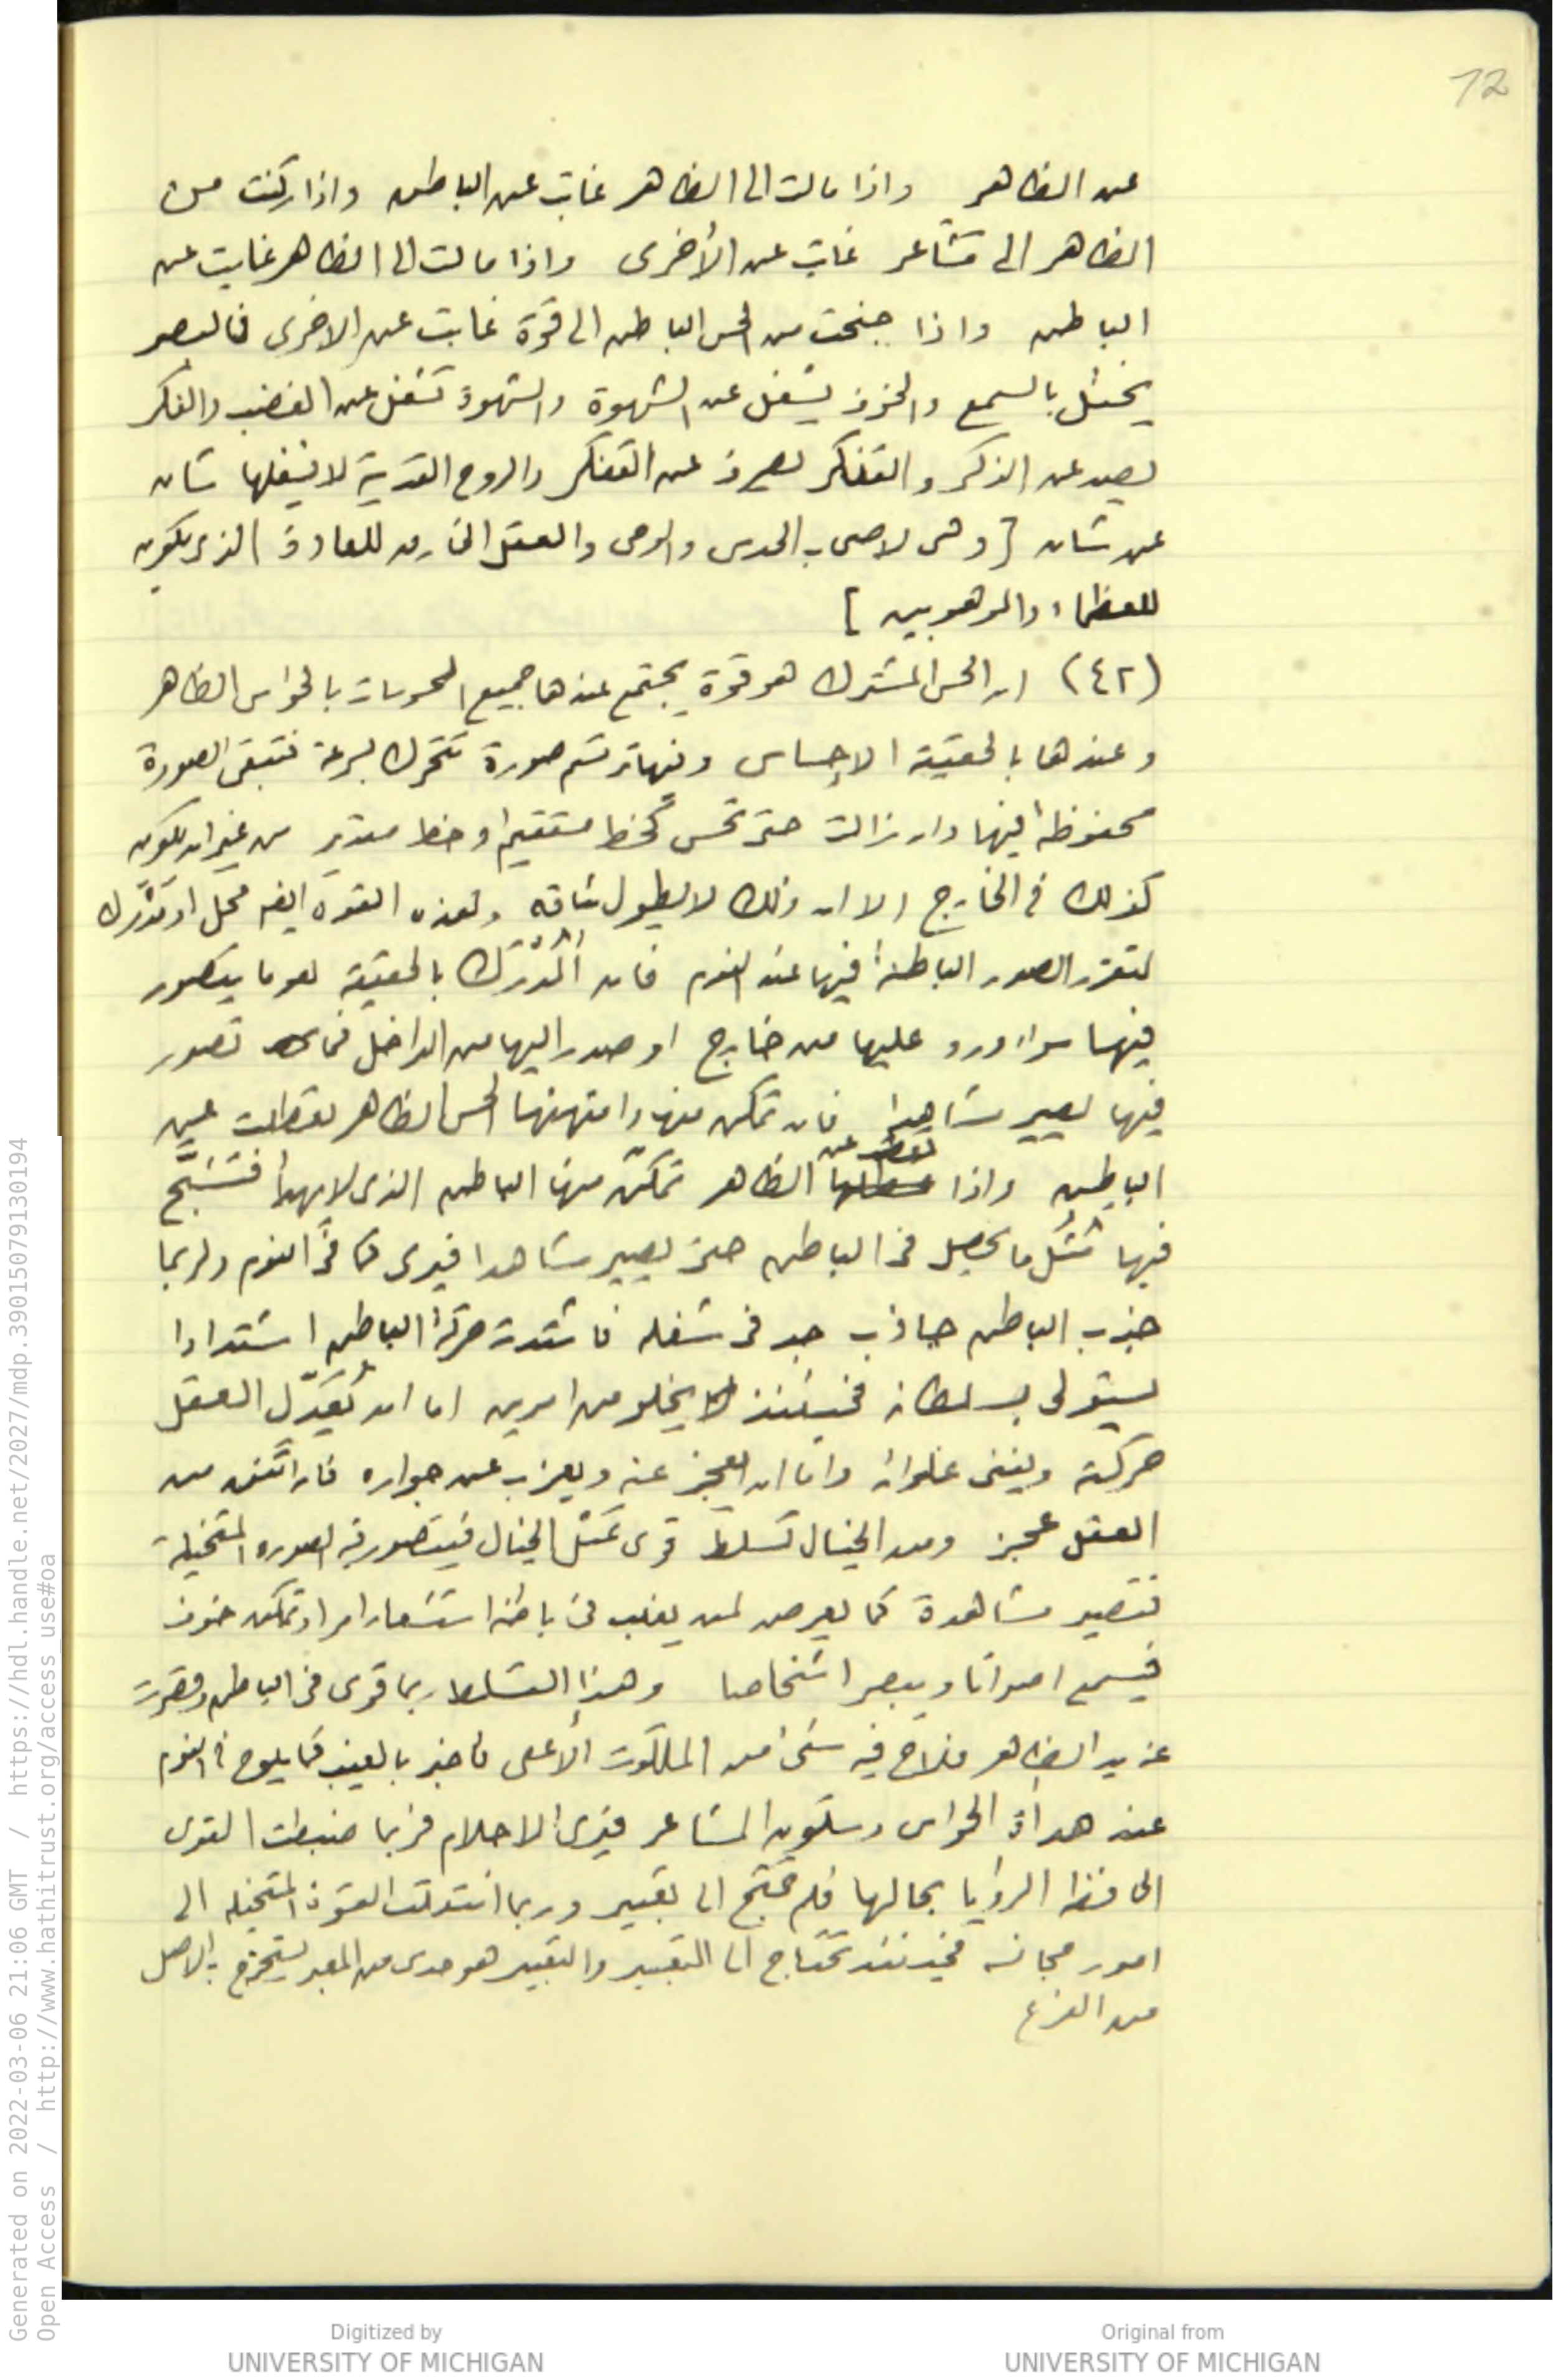 12
عن الظاهر واذا مالت الى الظاهر غابت عن الباطن واذا ركنت من
الظاهر الى مشاعر غابت عن الأخرى واذا مالت الى الظاهر غابت عن
الباطن واذا جنحت من الحس الباطن الى قوة غابت عن الاخرى فالبصر
يختل بالسمع والخوف يشغل عن الشهوة والشهوة تشغل عن الغضب والفكر
يصد عن الذكر والتفكر يصرف عن التفكر والروح القدسية لا يشغلها شان
عن شان [ وهى لاصحاب الحدس والوحى والعقل الخارق للعادة الذى يكون
للعظماء والموهوبين ]
(٤٢) ان الحس المشترك هو قوة يجتمع عندها جميع المحسوسات بالحواس الظاهر
وعندها بالحقيقة الاحساس وفيها ترتسم صورة تتحرك بسرعة فتبقى الصورة
محفوظة فيها وان زالت حتى تحس كخط مستقيم او خط مستدير من غير ان يكون
كذلك فى الخارج الا ان ذلك لا يطول ثباته وهذه القوة ايضا محل او مدرك
لتقرر الصور الباطنة فيها عند النوم فان المدرك بالحقيقة هو ما يتصور
فيها سواء ورد عليها من خارج او صدر اليها من الداخل فما تصور
فيها يصير مشاهدا فان تمكن منها وامتهنها الحس الظاهر تعطلت عن
الباطن واذا عطلها الظاهر تمكّن منها الباطن الذى لا يهدأ فتشبّح
فيها مثل ما يحصل فى الباطن حتى يصير مشاهدا فيرى كما فى النوم ولربما
جذب الباطن جاذب جد فى شغله فاشتدت حركة الباطن اشتدادا
يستولى بسلطانه فحينئذ لا يخلو من امرين اما ان يُعَدّل العقل
حركته ويفنى غلوائه واما ان يعجز عنه ويعزب عن جواره فان اتّفق من
العقل عجز ومن الخيال تسلط قوى تمثل الخيال فيتصور فيه الصوره المتخيلة
فتصير مشاهدة كما يعرض لمن يغلب فى باطنه استشعار امر او تمكن خوف
فيسمع اصواتا ويبصر اشخاصا وهذا التسلط ربما قوى فى الباطن وقصرت
عنه يد الظاهر فلاح فيه شئ من الملكوت الأعلى فاخبر بالغيب كما يلوح فى النوم
عند هدأة الحواس وسكون المشاعر فيرى الاحلام فربما ضبطت القوى
الحافظه الرؤيا بحالها فلم تحتج الى تعبير وربما انتقلت القوة المتخيله الى
امور مجانسه فحينئذ تحتاج الى التعبير والتعبير هو حدس من المعبر يستخرج به الاصل
من الفرع
Generated on 2022-03-06 21:06 GMT / https://hdl.handle.net/2027/mdp.39015079130194
Open Access / http://www.hathitrust.org/access_use#oa
Digitized by
UNIVERSITY OF MICHIGAN
Original from
UNIVERSITY OF MICHIGAN